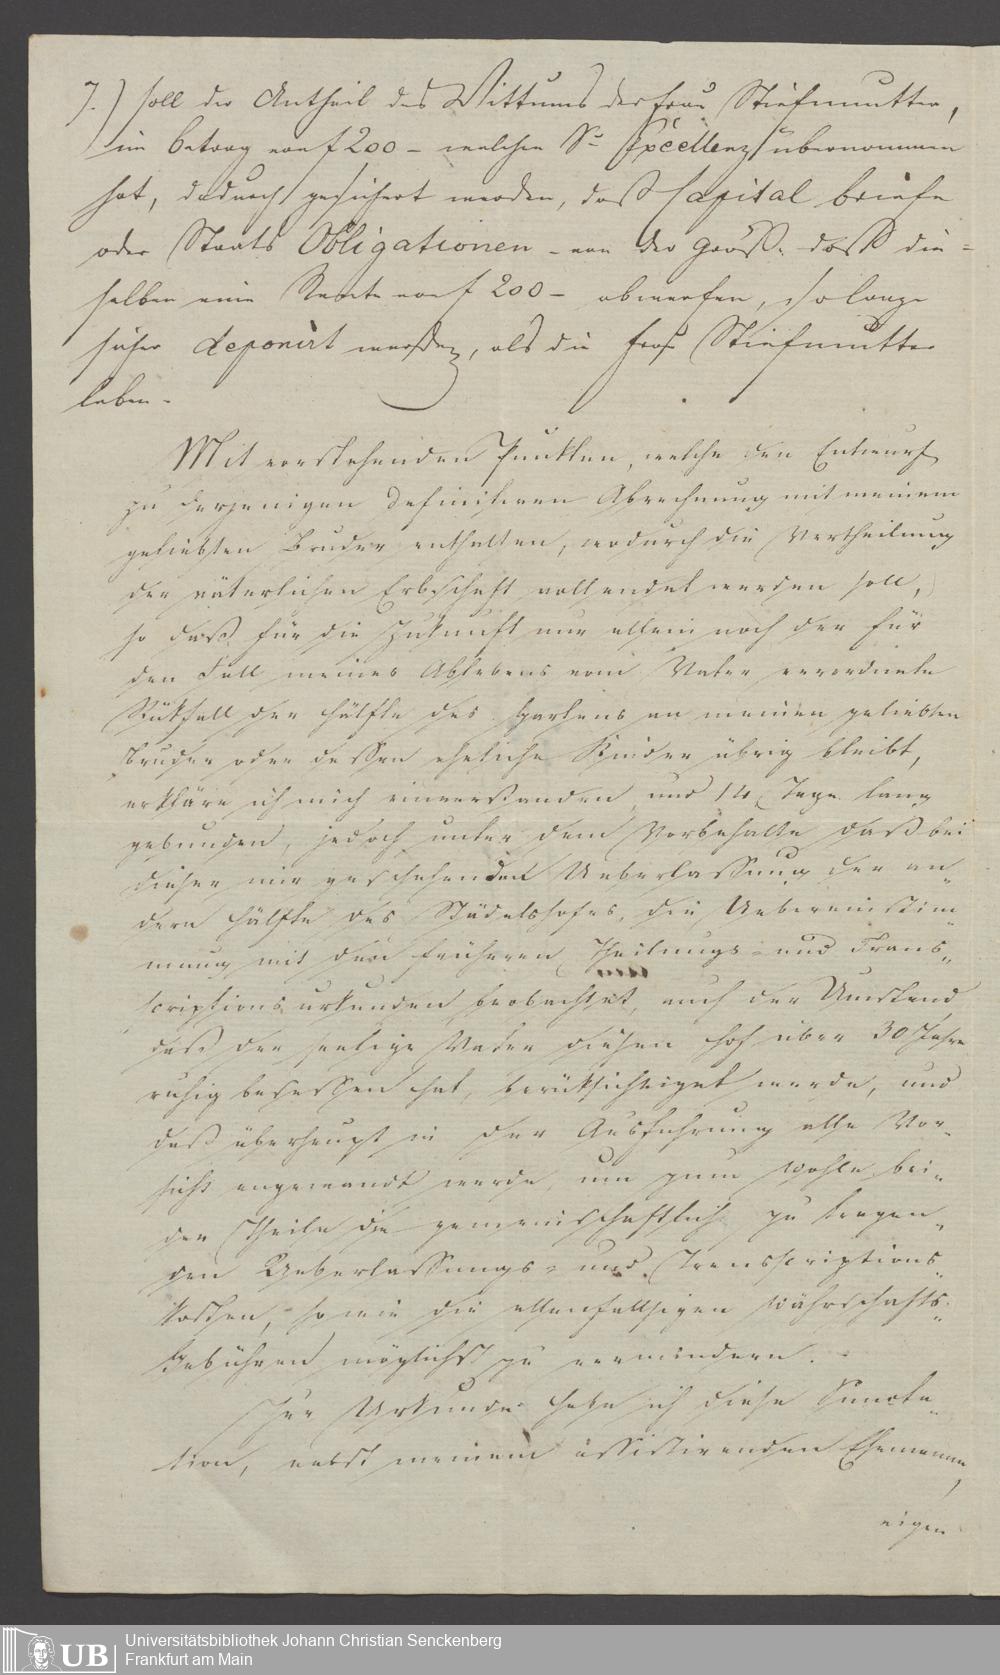 7.) soll der Antheil des Wittums der Frau Stiefmutter,
im Betrag von f 200 – welchen Sr Excellenz übernommen
hat, dadurch gesichert werden, daß Capital briefe
oder Staats Obligationen – von der Größe daß die=
selben eine Rente von f 200 – abwerfen, so lange
sicher deponirt werden, als die Frau Stiefmutter
leben.
Mit vorstehenden Punkten, welche den Entwurf
zu derjenigen definitiven Abrechnung mit meinem
geliebten Bruder enthalten, wodurch die Vertheilung
der väterlichen Erbschaft vollendet werden soll,
so daß für die Zukunft nur allein noch der für
den Fall meines Ablebens vom Vater verordnete
Rükfall der Hälfte des Gartens an meinen geliebten
Bruder oder dessen eheliche Kinder übrig bleibt,
erkläre ich mich einverstanden und 14 Tage lang
gebunden, jedoch unter dem Vorbehalte daß bei
dieser mir geschehenden Ueberlassung der an„
dern Hälfte des Städelshofes, die Uebereinstim„
mung mit den früheren Theilungs- und Trans„
scriptions urkunden beobachtet, auch der Umstand
daß der seelige Vater diesen Hof über 30 Jahre
ruhig besessen hat, berüksichtiget werde, und
daß überhaupt in der Ausführung alle Vor„
sicht angewandt werde, um zum Wohle bei„
der Theile die gemeinschaftlich zu tragen„
den Ueberlassungs- und Transscriptions„
kosten, so wie die allenfallsigen Währschafts„
Gebühren möglichst zu vermindern. –
Zur Urkunde habe ich diese Puncta„
tion, nebst meinem assistirenden Ehemanne,
eigen
UB
Universitätsbibliothek Johann Christian Senckenberg
Frankfurt am Main